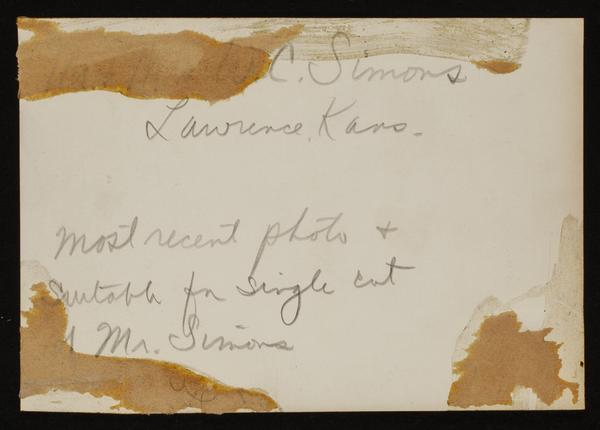 W.C. Simons
Lawrence, Kans.
most recent photo +
suitable for single cut
Mr. Simons